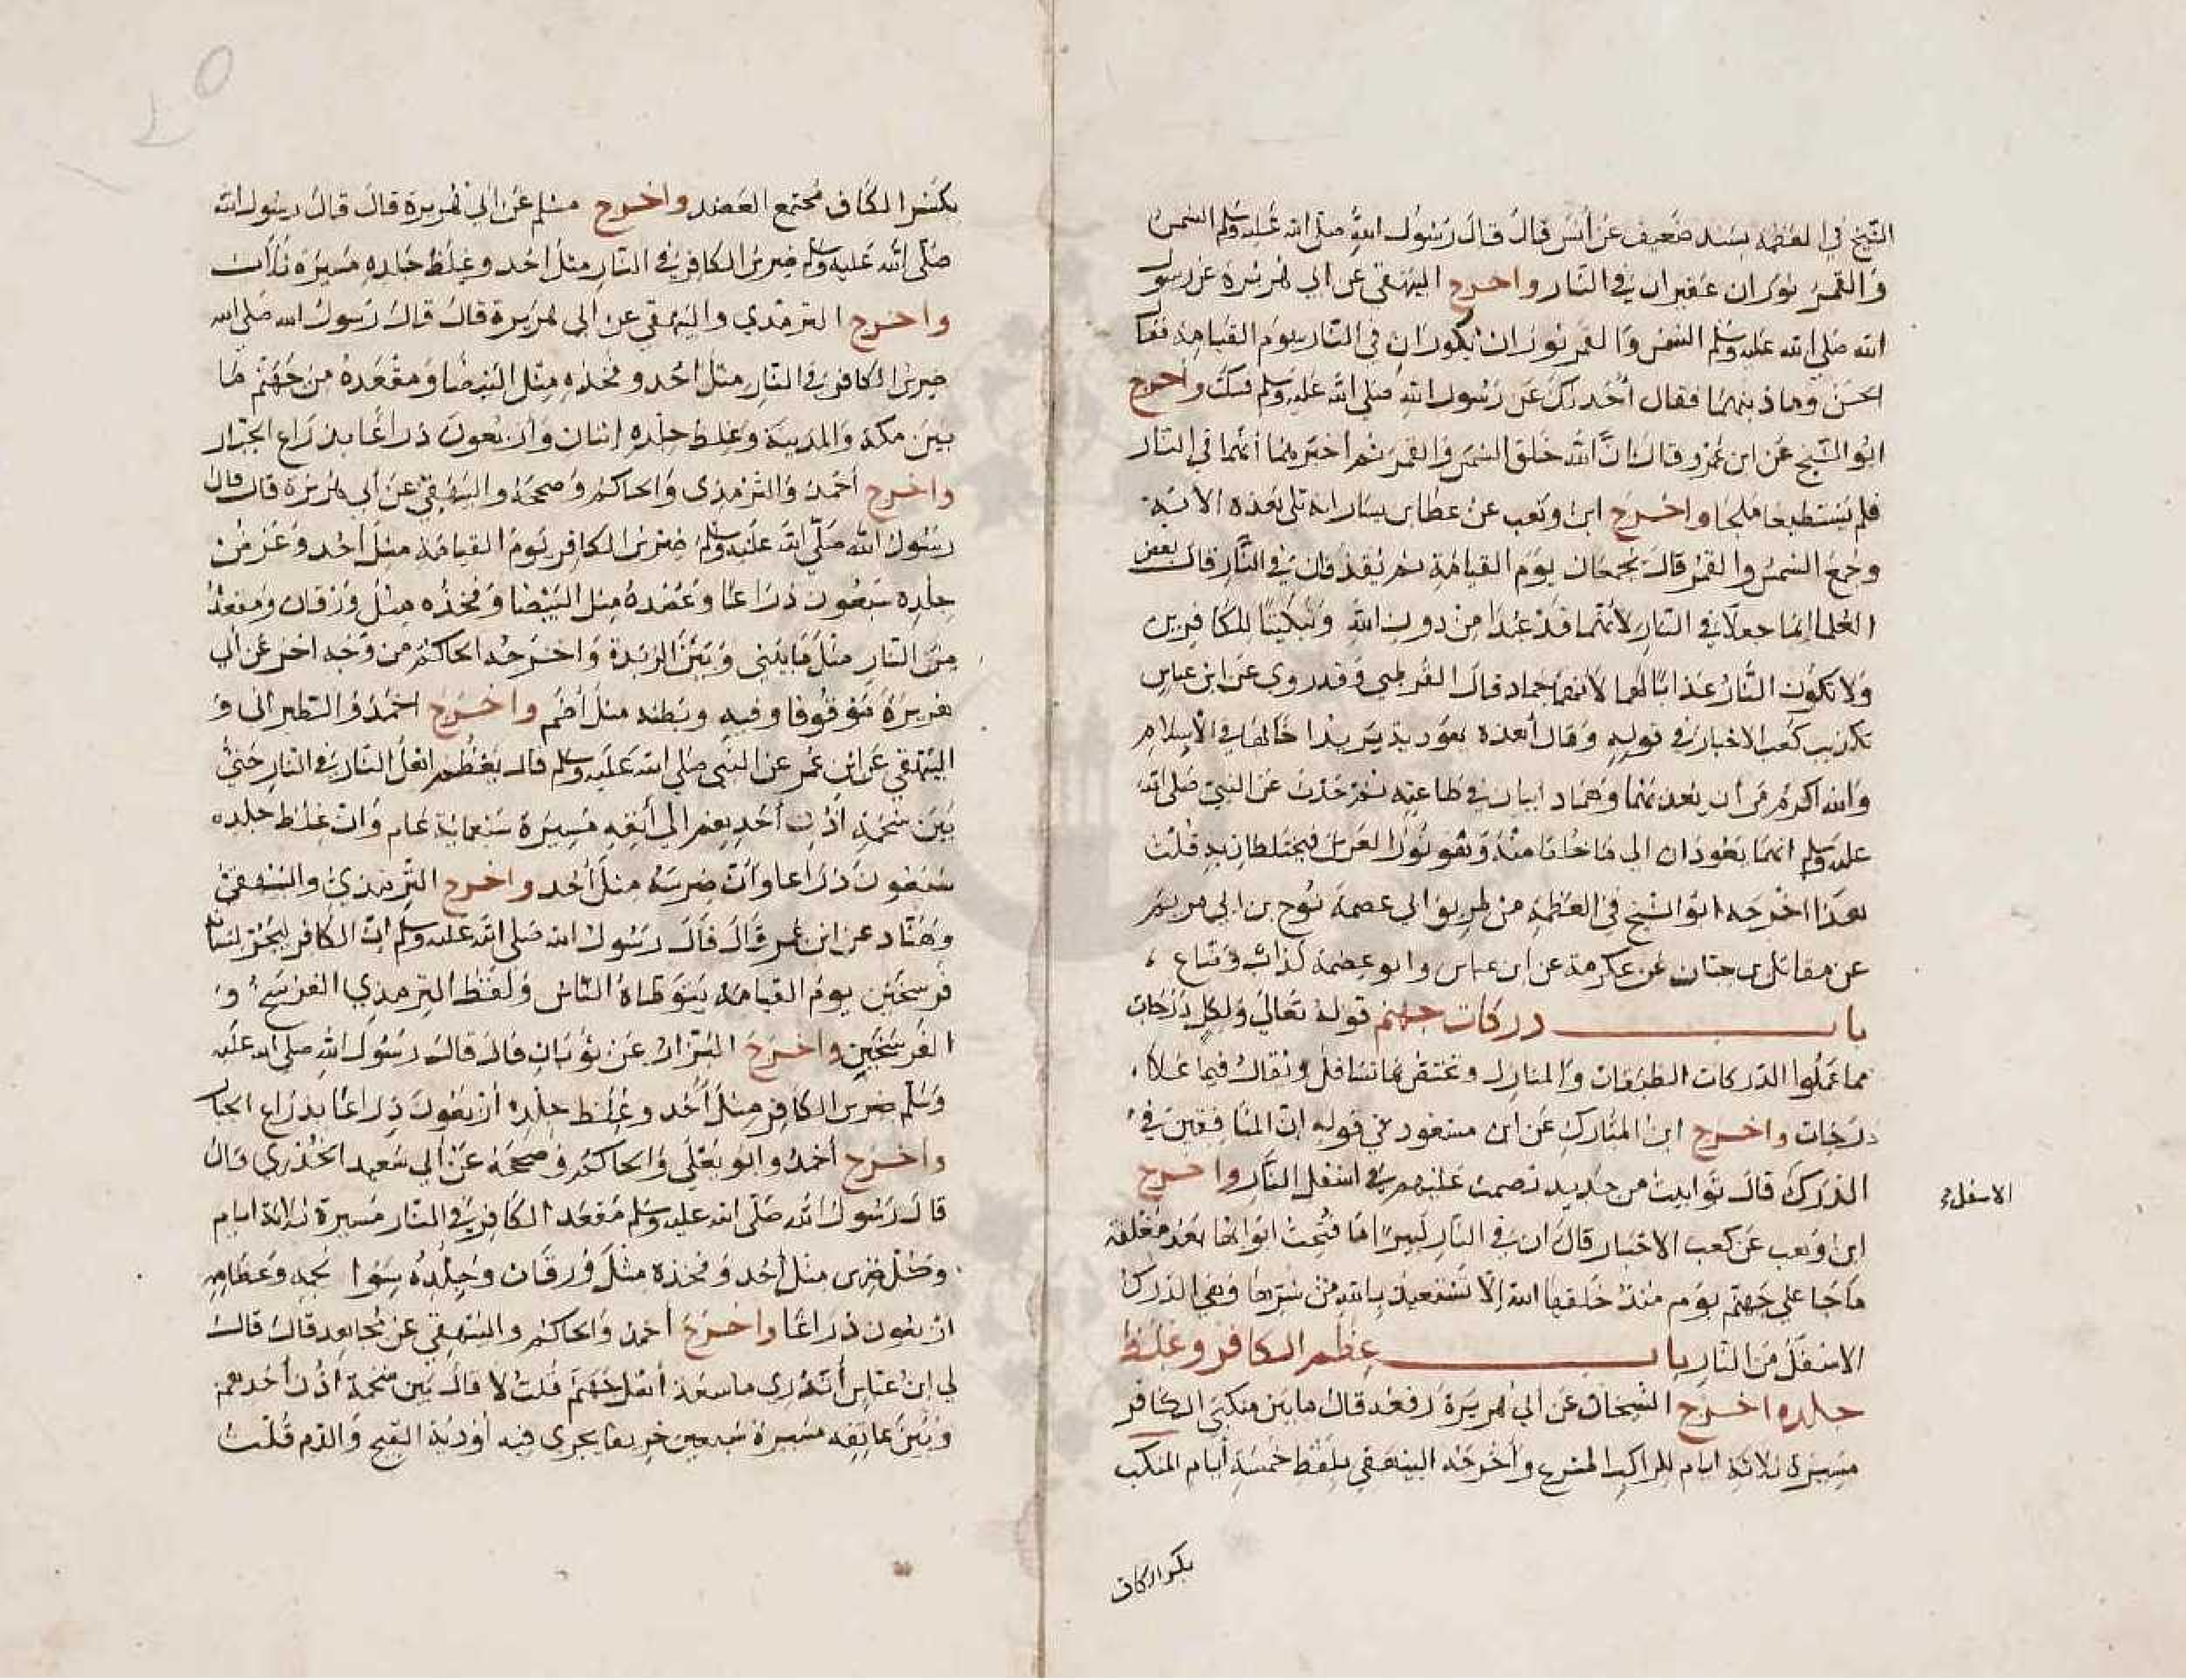 الشيخ في العظمة بسند ضعيف عن أنس قال قال رسول الله صلى الله عليه وسلم الشمس
والقمر ثوران عقيران في النار واخرج البيهقي عن ابي هريرة عن رسول
الله صلى الله عليه وسلم الشمس والقمر ثوران يكوران في النار يوم القيامة فقا
الحسن وما ذنبهما فقال أحدثك عن رسول الله صلى الله عليه وسلم فسكت واخرج
ابو الشيخ عن ابن عمرو قال ان الله خلق الشمس والقمر ثم اخبر بهما أنهما في النار
فلم يستطيعا ملجا واخرج ابن وهب عن عطا بن يسار انه تلى هذه الاية
وجمع الشمس والقمر قال يجمعان يوم القيامة ثم يقذفان في النار قال بعض
العلما انما جعلا في النار لأنهما قد عبدا من دون الله وتبكيتا للكافرين
ولا تكون النار عذابا لهما لأنهما جماد قال القرطبى وقد روى عن ابن عباس
تكذيب كعب الاخبار في قوله وقال هذه يهودية يريد ادخالها في الاسلام
والله اكرم من أن يعذبهما وهما دايبان في طاعته ثم حدث عن النبي صلى الله
عليه وسلم انهما يعودان الى ما خلقا منه وهو نور العرش فيختلطان به قلت
هذا اخرجه ابو الشيخ في العظمة من طريق ابي عصمة نوح بن ابي مريم
عن مقاتل بن حيان عن عكرمة عن ابن عباس وابو عصمة كذاب وضاع ،
باب دركات جهنم قوله تعالى ولكل درجات
مما عملوا الدركات الطبقات والمنازل وتختص بما تسافل ويقال فيما علا ،
درجات واخرج ابن المبارك عن ابن مسعود في قوله ان المنافقين في
الدرك قال توابيت من حديد تصمت عليهم في اسفل النار واخرج
الاسفل
ابن وهب عن كعب الاخبار قال ان في النار لبيرا ما فتحت ابوابها بعد مغلقة
ما جا على جهنم يوم منذ خلقها الله الا تستعيذ بالله من شر ها وهي الدرك
الاسفل من النار باب عظم الكافر وغلظ
جلده اخرج الشيخان عن أبي هريرة رفعه قال ما بين منكبي الكافر
مسيرة ثلاثة ايام للراكب المسرع وأخرجه البيهقي بلفظ خمسة أيام المنكب
بكسر الكاف
بكسر الكاف مجتمع العضد واخرج مسلم عن ابي هريرة قال قال رسول الله
صلى الله عليه وسلم ضرس الكافر في النار مثل احد وغلظ جلده مسيرة ثلاث
واخرج الترمذي والبيهقي عن ابى هريرة قال قال رسول الله صلى الله
ضرس الكافر في النار مثل احد وفخذه مثل البيضا ومقعده من جهنم ما
بين مكة والمدينة وغلظ جلده اثنان وأربعون ذراعا بذراع الجبار
واخرج أحمد والترمذى والحاكم وصححه والبيهقي عن أبي هريرة قال قال
رسول الله صلى الله عليه وسلم ضرس الكافر يوم القيامة مثل أحد وعرض
جلده سبعون ذراعا وعضده مثل البيضا وفخذه مثل ورقان ومقعده
من النار مثل ما بيني وبين الربذة واخرجه الحاكم من وجه اخر عن أبي
هريرة موقوفا وفيه وبطنه مثل أضم واخرج احمد والطبرانى و
البيهقي عن ابن عمر عن النبي صلى الله عليه وسلم قال يعظم اهل النار في النار حتى
بين شحمة اذن أحدهم الى عاتقه مسيرة سبعماية عام وان غلظ جلده
سبعون ذراعا وان ضرسه مثل أحد واخرج الترمذي والبيهقي
وهناد عن ابن عمر قال قال رسول الله صلى الله عليه وسلم ان الكافر ليجر لسانه
فرسخين يوم القيامة يتوطاه الناس ولفظ الترمذي الفرسخ و
الفرسخين واخرج البزار عن ثوبان قال قال رسول الله صلى الله عليه
وسلم ضرس الكافر مثل أحد وغلظ جلده أربعون ذراعا بذراع الجبار
واخرج أحمد وابو يعلى والحاكم وصححه عن أبي سعيد الخدري قال
قال رسول الله صلى الله عليه وسلم مقعد الكافر في النار مسيرة ثلاثة ايام
وكل ضرس مثل احد وفخذه مثل ورقان وجلده سوا لحمه وعظامه
اربعون ذراعا واخرج أحمد والحاكم والبيهقي عن مجاهد قال قال
لي ابن عباس أتدري ما سعة أهل جهنم قلت لا قال بين شحمة اذن أحدهم
وبين عاتقه مسيرة سبعين خريفا يجري فيه أودية القيح والدم قلت